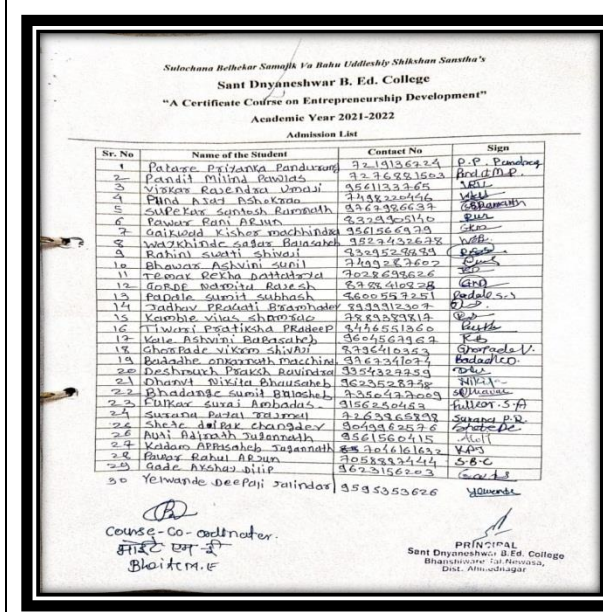 Sulochana Belhekar Samajik Va Bahu Uddleshiy Shikshan Sanstha's
Sant Dnyaneshwar B. Ed. College
"A Certificate Course on Entrepreneurship Development"
Academic Year 2021-2022
Admission List
Sr. No Name of the Student Contact No Sign
1 Patare Priyanka Pandurang 7219136224 P.P. Pandurang
2 Pandit Milind Pawlas 7276881503 Pndt M.P.
3 Virkar Rajendra Umaji 9561133765
4 Pund Ajay Ashokrao 7498220446
5 Supekar Santosh Ramnath 9762986637
6 Pawar Rani Arjun 8329905140
7 Gaikwad Kishor machhindra 9561566979
8 Waykhinde sagar Balasaheb 9527432678
9 Rahinj swati shivaji 8329528889
10 Bhawar Ashvini sunil 7499287602
11 Temak Rekha Dattatraya 7028698626
12 GORDE Namita Rajesh 8788410828
13 Papdle sumit subhash 8600557251 Padale S.S
14 Jadhav Pragati Bramhadev 8999912307
15 Kamble vilas shamrao 7889289817
16 Tiwari Pratiksha Pradeep 8446551360
17 Kale Ashvini Babasaheb 9604567967 K.B
18 Ghorpade vikram shivaji 8796410353 Ghorpade V.
19 Badadhe onkarnath macchind 9967341074 Badadhe O.
20 Deshmukh Praksh Ravindra 9354327759
21 Dhanvt Nikita Bhausaheb 9623528738
22 Bhadange Sumit Balasheb 7350477009
23 Fulkar suraj Ambadas 9156250453 Fulkar S.A
24 Surana Putal rajmal 7263965898 Surana P.R
25 Shete deipak changdev 9049962576
26 Auti Adinath Jagannath 9561560415
27 Kadam APPAsaheb Jagannath 8570461632 K.P.J
28 Pawar Rahul Arjun 7058887444 S.B.C
29 Gade Akshay Dilip 9623156203
30 Yelwande Deepali Jalindar 9595353626 Yelwande
Course-Co-oodinater.
Bhaite M.E
PRINCIPAL
Sant Dnyaneshwar B.Ed. College
Bhanshivare Tal.Newasa,
Dist. Ahmednagar